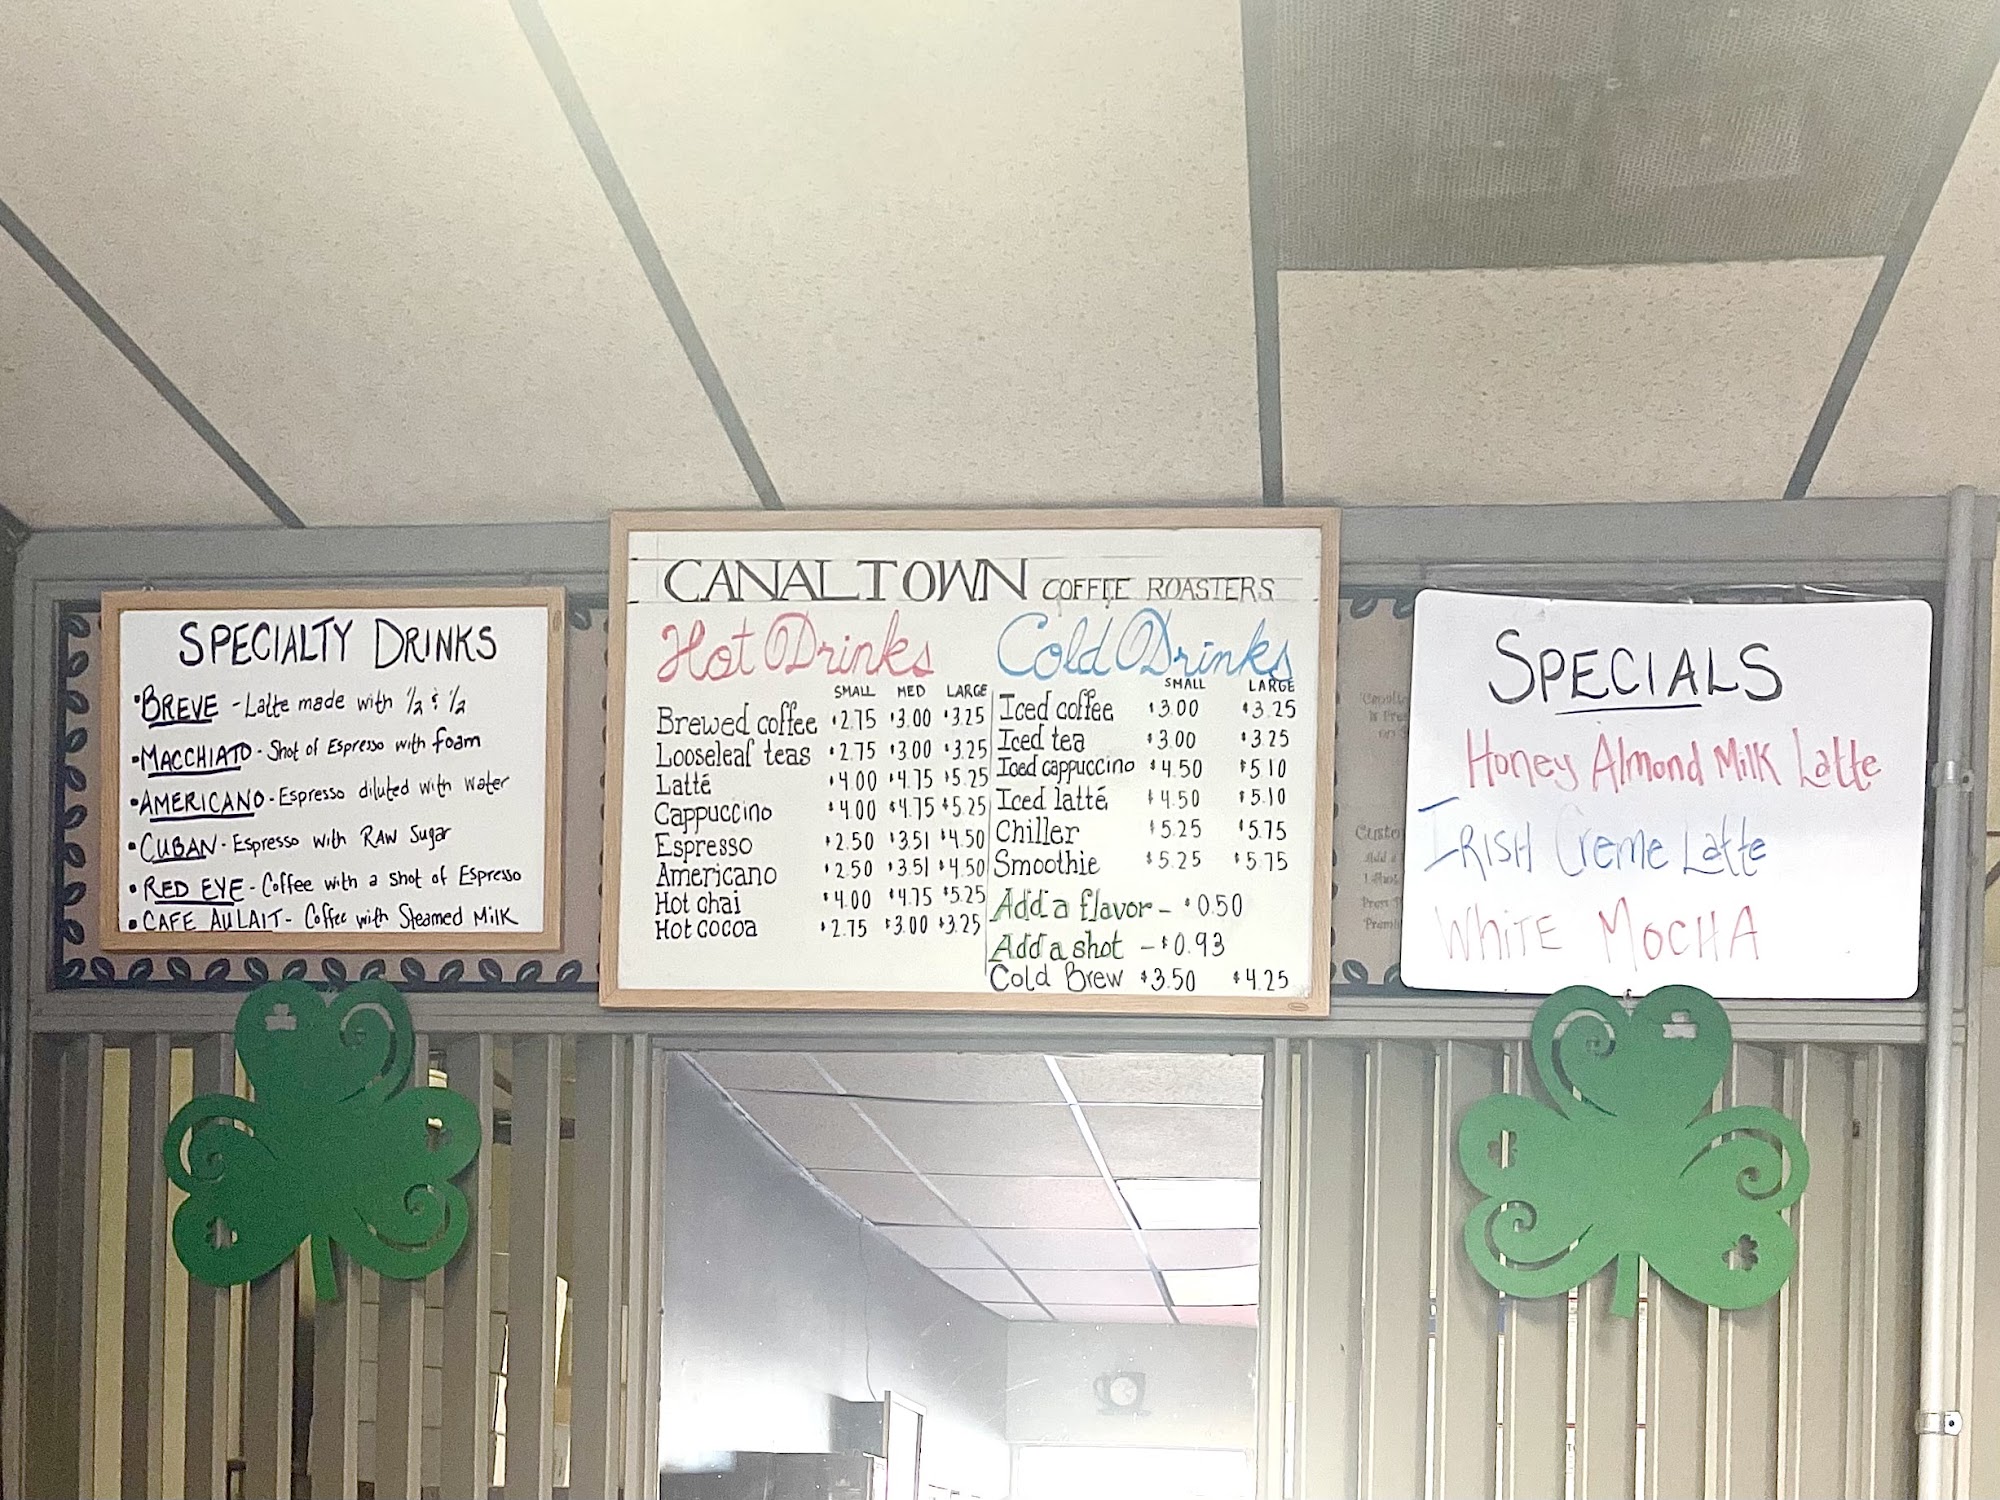 SPECIALTY DRINKS
• BREVE - Latte made with 1/2 & 1/2
• MACCHIATO - Shot of Espresso with foam
• AMERICANO - Espresso diluted with water
• CUBAN - Espresso with RAW Sugar
• RED EYE - Coffee with a shot of Espresso
• CAFE AU LAIT - Coffee with Steamed Milk
CANALTOWN COFFEE ROASTERS
Hot Drinks
SMALL MED LARGE
Brewed coffee $2.75 $3.00 $3.25
Looseleaf teas $2.75 $3.00 $3.25
Latté $4.00 $4.75 $5.25
Cappuccino $4.00 $4.75 $5.25
Espresso $2.50 $3.51 $4.50
Americano $2.50 $3.51 $4.50
Hot chai $4.00 $4.75 $5.25
Hot cocoa $2.75 $3.00 $3.25
Cold Drinks
SMALL LARGE
Iced coffee $3.00 $3.25
Iced tea $3.00 $3.25
Iced cappuccino $4.50 $5.10
Iced latté $4.50 $5.10
Chiller $5.25 $5.75
Smoothie $5.25 $5.75
Add a flavor - $0.50
Add a shot - $0.93
Cold Brew $3.50 $4.25
SPECIALS
Honey Almond Milk Latte
IRISH Creme Latte
WHITE MOCHA